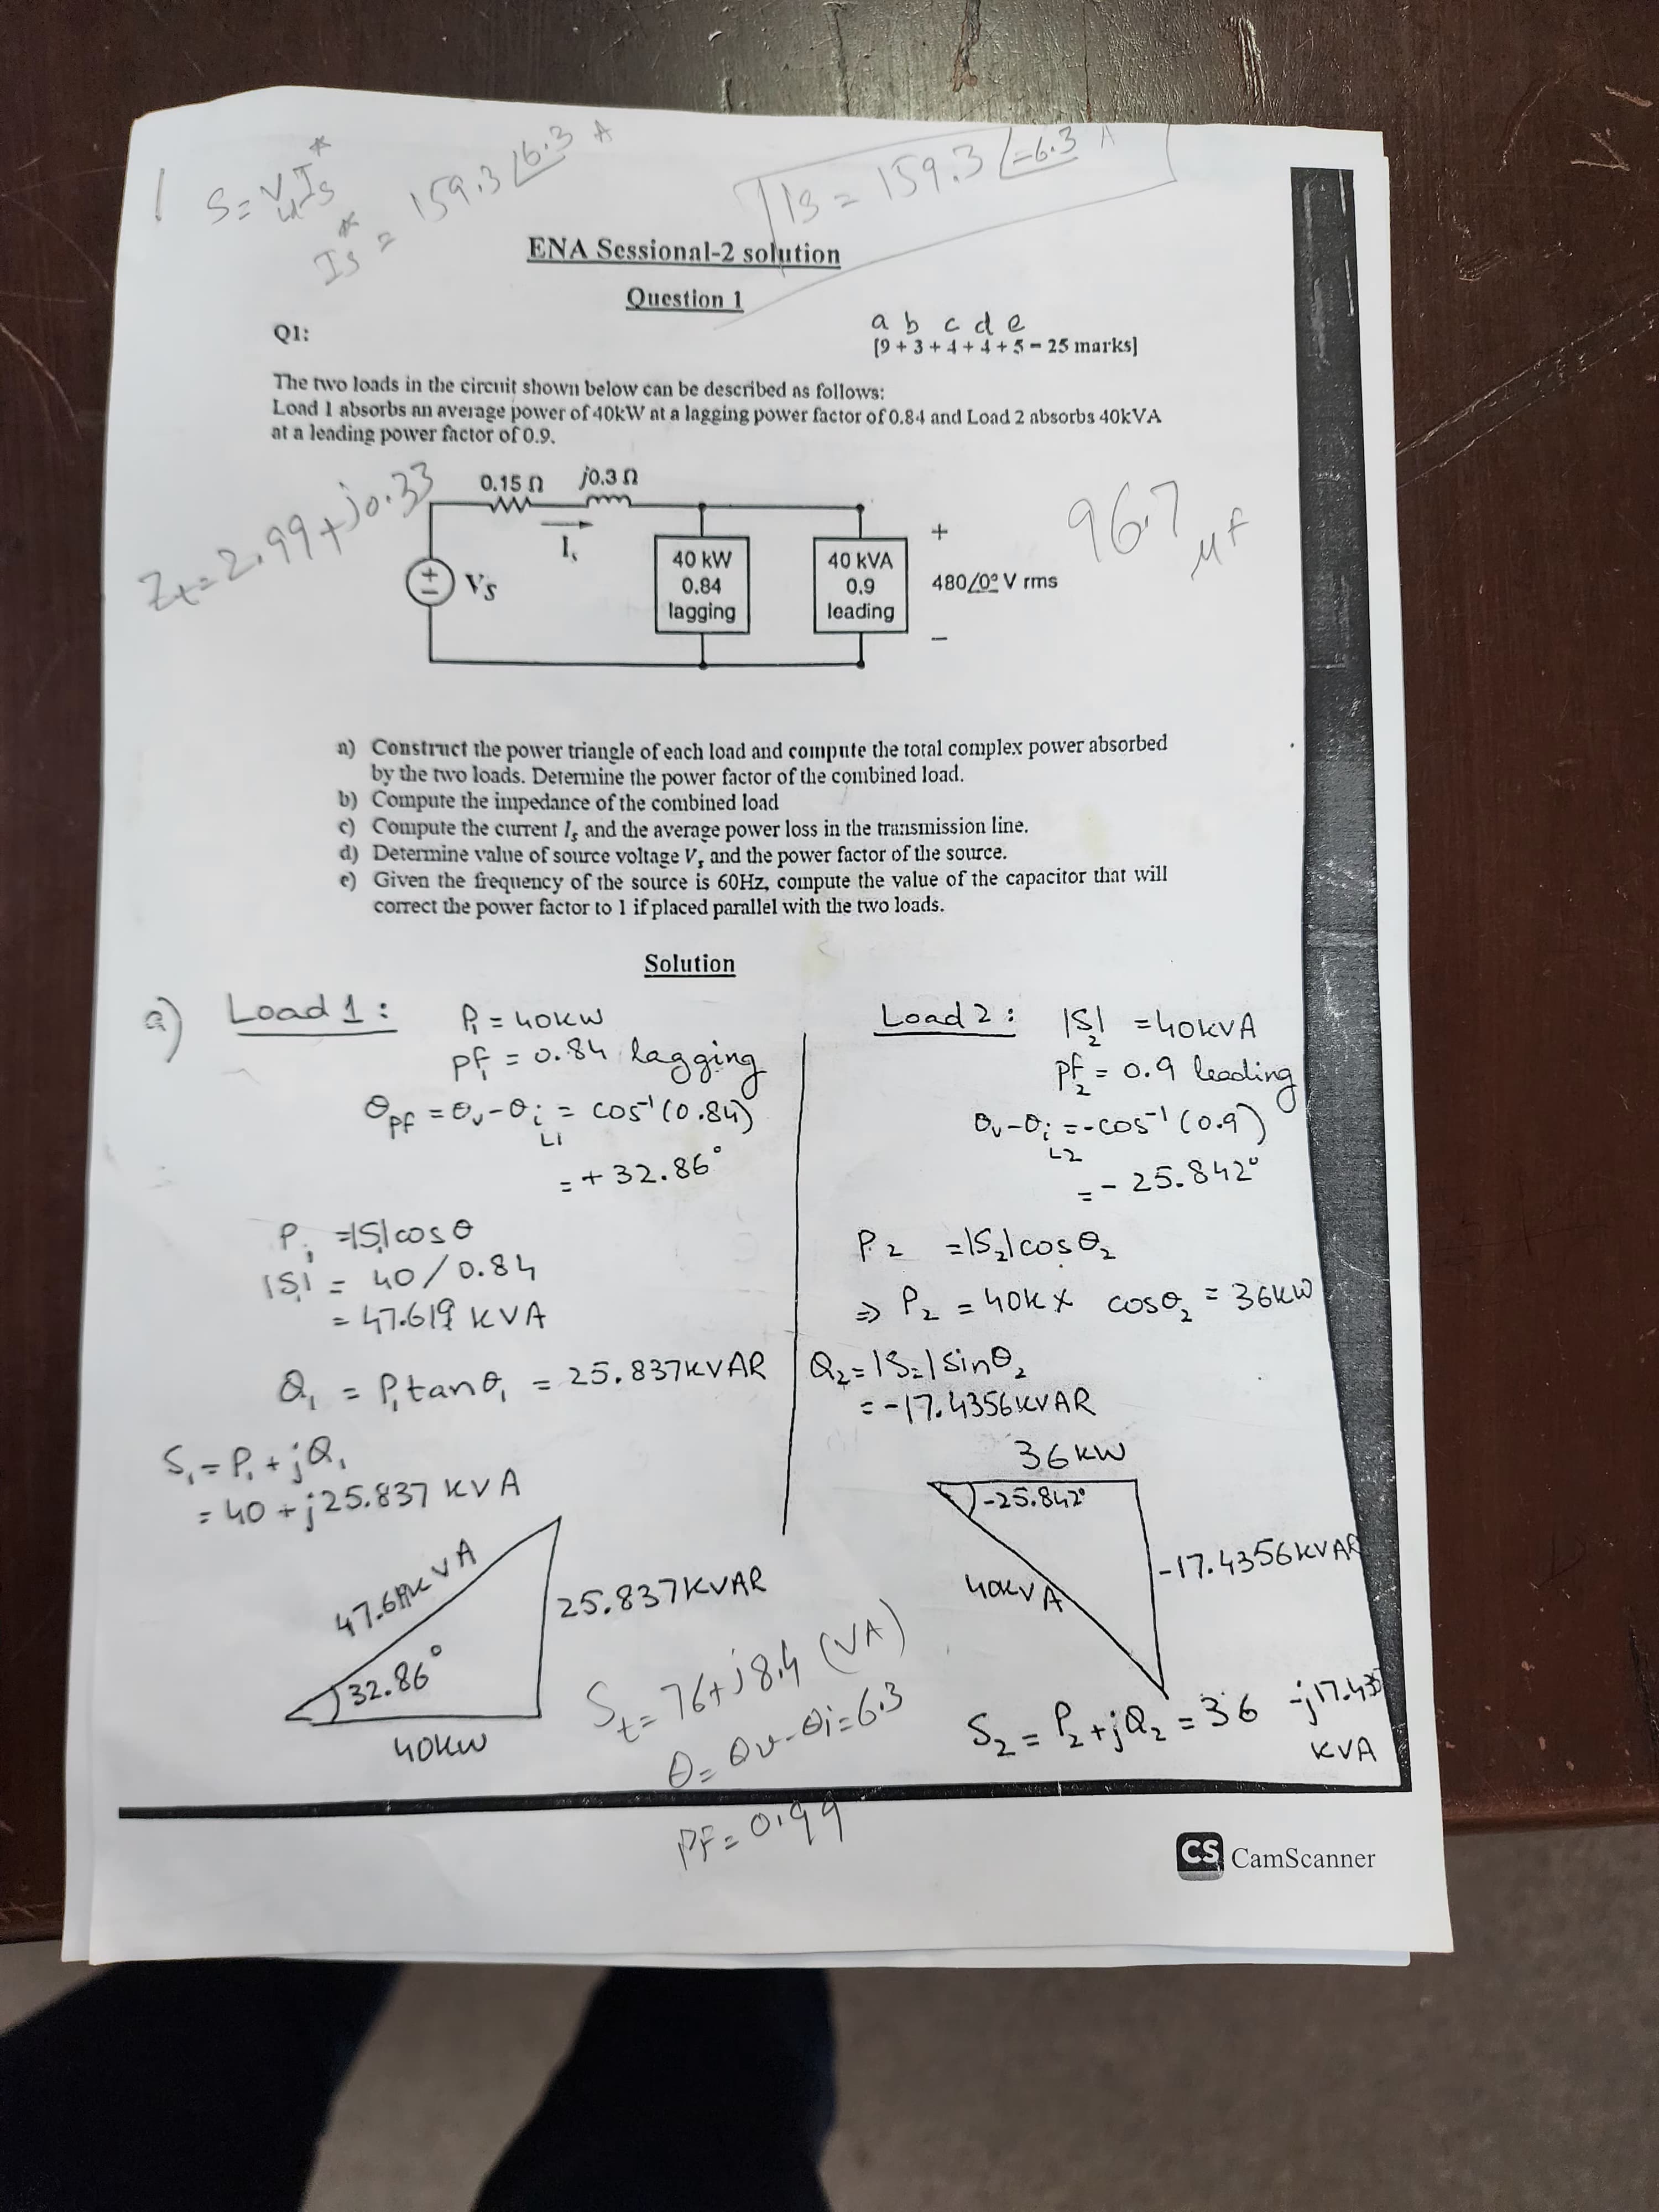 S = V_L I_s*
I_s* = 159.3 ∠6.3 A
I_s = 159.3 ∠-6.3 A
ENA Sessional-2 solution
Question 1
a b c d e
Q1:
[9 + 3 + 4 + 4 + 5 = 25 marks]
The two loads in the circuit shown below can be described as follows:
Load 1 absorbs an average power of 40kW at a lagging power factor of 0.84 and Load 2 absorbs 40kVA
at a leading power factor of 0.9.
Zt = 2.99 + j0.33
0.15 Ω
j0.3 Ω
Is
+
-
Vs
40 kW
0.84
lagging
40 kVA
0.9
leading
+
480∠0° V rms
−
96.7 μF
a) Construct the power triangle of each load and compute the total complex power absorbed
by the two loads. Determine the power factor of the combined load.
b) Compute the impedance of the combined load
c) Compute the current Is and the average power loss in the transmission line.
d) Determine value of source voltage Vs and the power factor of the source.
e) Given the frequency of the source is 60Hz, compute the value of the capacitor that will
correct the power factor to 1 if placed parallel with the two loads.
Solution
a) Load 1:
P₁ = 40KW
pf₁ = 0.84 lagging
θpf = θv-θi L1 = cos⁻¹(0.84)
= + 32.86°
P₁ = |S₁|cosθ
|S₁| = 40/0.84
= 47.619 KVA
Q₁ = P₁tanθ₁ = 25.837KVAR
S₁ = P₁ + jQ₁
= 40 + j25.837 KVA
47.619KVA
32.86°
25.837KVAR
40KW
Load 2:
|S₂| = 40KVA
pf₂ = 0.9 leading
θv-θi L2 = -cos⁻¹(0.9)
= - 25.842°
P₂ = |S₂|cosθ₂
⇒ P₂ = 40K x cosθ₂ = 36KW
Q₂ = |S₂|sinθ₂
= -17.4356KVAR
36KW
-25.842°
40KVA
-17.4356KVAR
S₂ = P₂ + jQ₂ = 36 -j17.435
KVA
St = 76+j8.4 (VA)
θ = θv-θi = 6.3
PF = 0.99
CS CamScanner